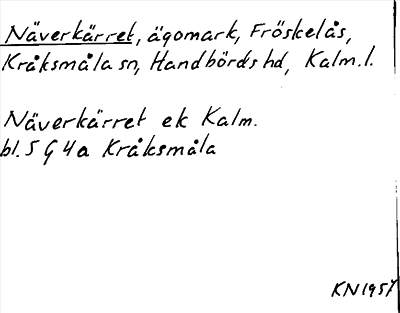 Näverkärret, ägomark, Fröskelås,
Kråksmåla sn, Handbörds hd, Kalm.l.
Näverkärret ek Kalm.
bl. 5 G 4a Kråksmåla
KN1957